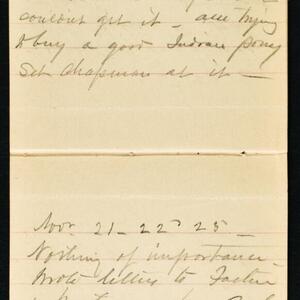 couldnt get it - am trying
to buy a good Indian pony
Set Chapman at it -
Nov. 21 - 22d 23 -
Nothing of importance -
Wrote letters to